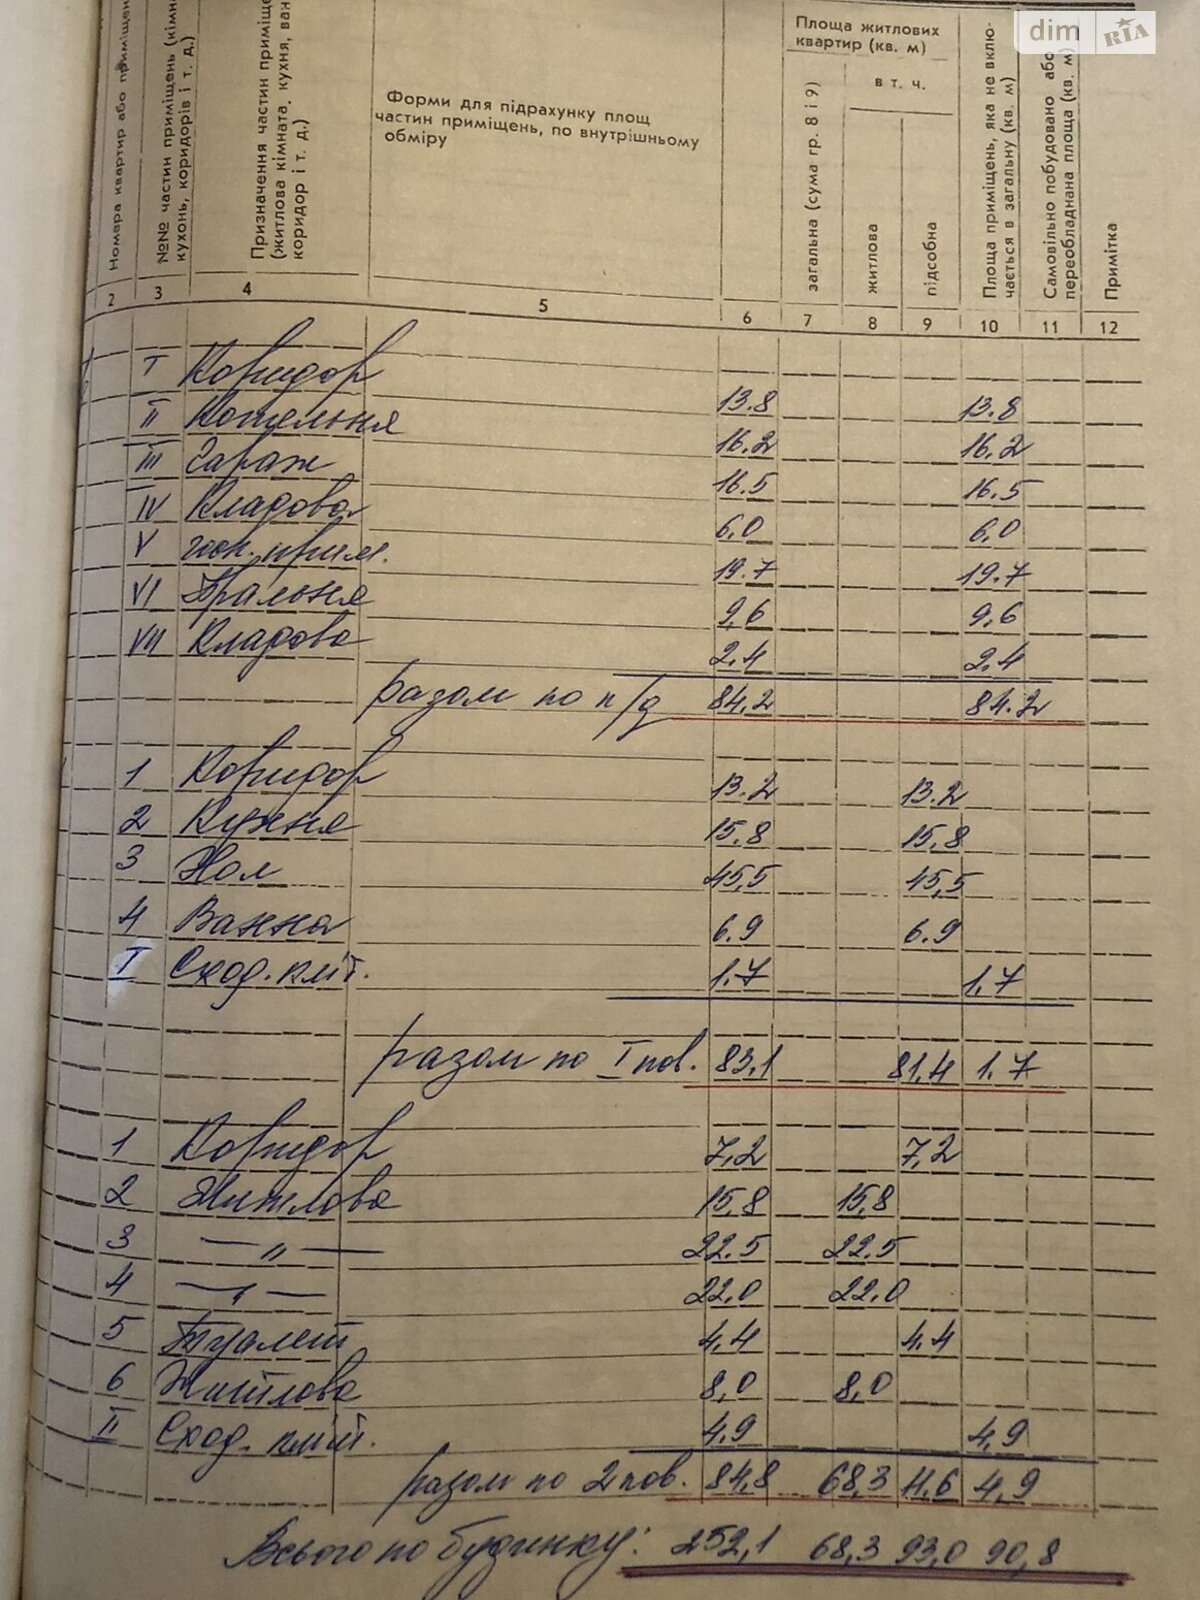 dim RIA
Номера квартир або приміщень
№№ частин приміщень (кімнат
кухонь, коридорів і т. д.)
Призначення частин приміщень
(житлова кімната, кухня, ван
коридор і т. д.)
Форми для підрахунку площ
частин приміщень, по внутрішньому
обміру
Площа житлових
квартир (кв. м)
в т. ч.
загальна (сума гр. 8 і 9)
житлова
підсобна
Площа приміщень, яка не вклю-
чається в загальну (кв. м)
Самовільно побудовано або
переобладнана площа (кв. м)
Примітка
2 3 4 5 6 7 8 9 10 11 12
I Коридор 13.8 13.8
II Котельня 16.2 16.2
III Гараж 16.5 16.5
IV Кладова 6,0 6,0
V гос. прим. 19.7 19.7
VI Пральня 9,6 9,6
VII Кладова 2.4 2.4
разом по п/д 84,2 84.2
1 Коридор 13.2 13.2
2 Кухня 15.8 15,8
3 Хол 45,5 45,5
4 Ванна 6.9 6.9
I Сход. кліт. 1.7 1,7
разом по I пов. 83,1 81,4 1.7
1 Коридор 7,2 7,2
2 Житлова 15,8 15,8
3 — „ — 22.5 22.5
4 — „ — 22,0 22.0
5 Туалет 4.4 4.4
6 Житлова 8,0 8,0
II Сход. кліт. 4.9 4,9
разом по 2 пов. 84,8 68,3 11.6 4,9
Всього по будинку: 252,1 68,3 93,0 90,8